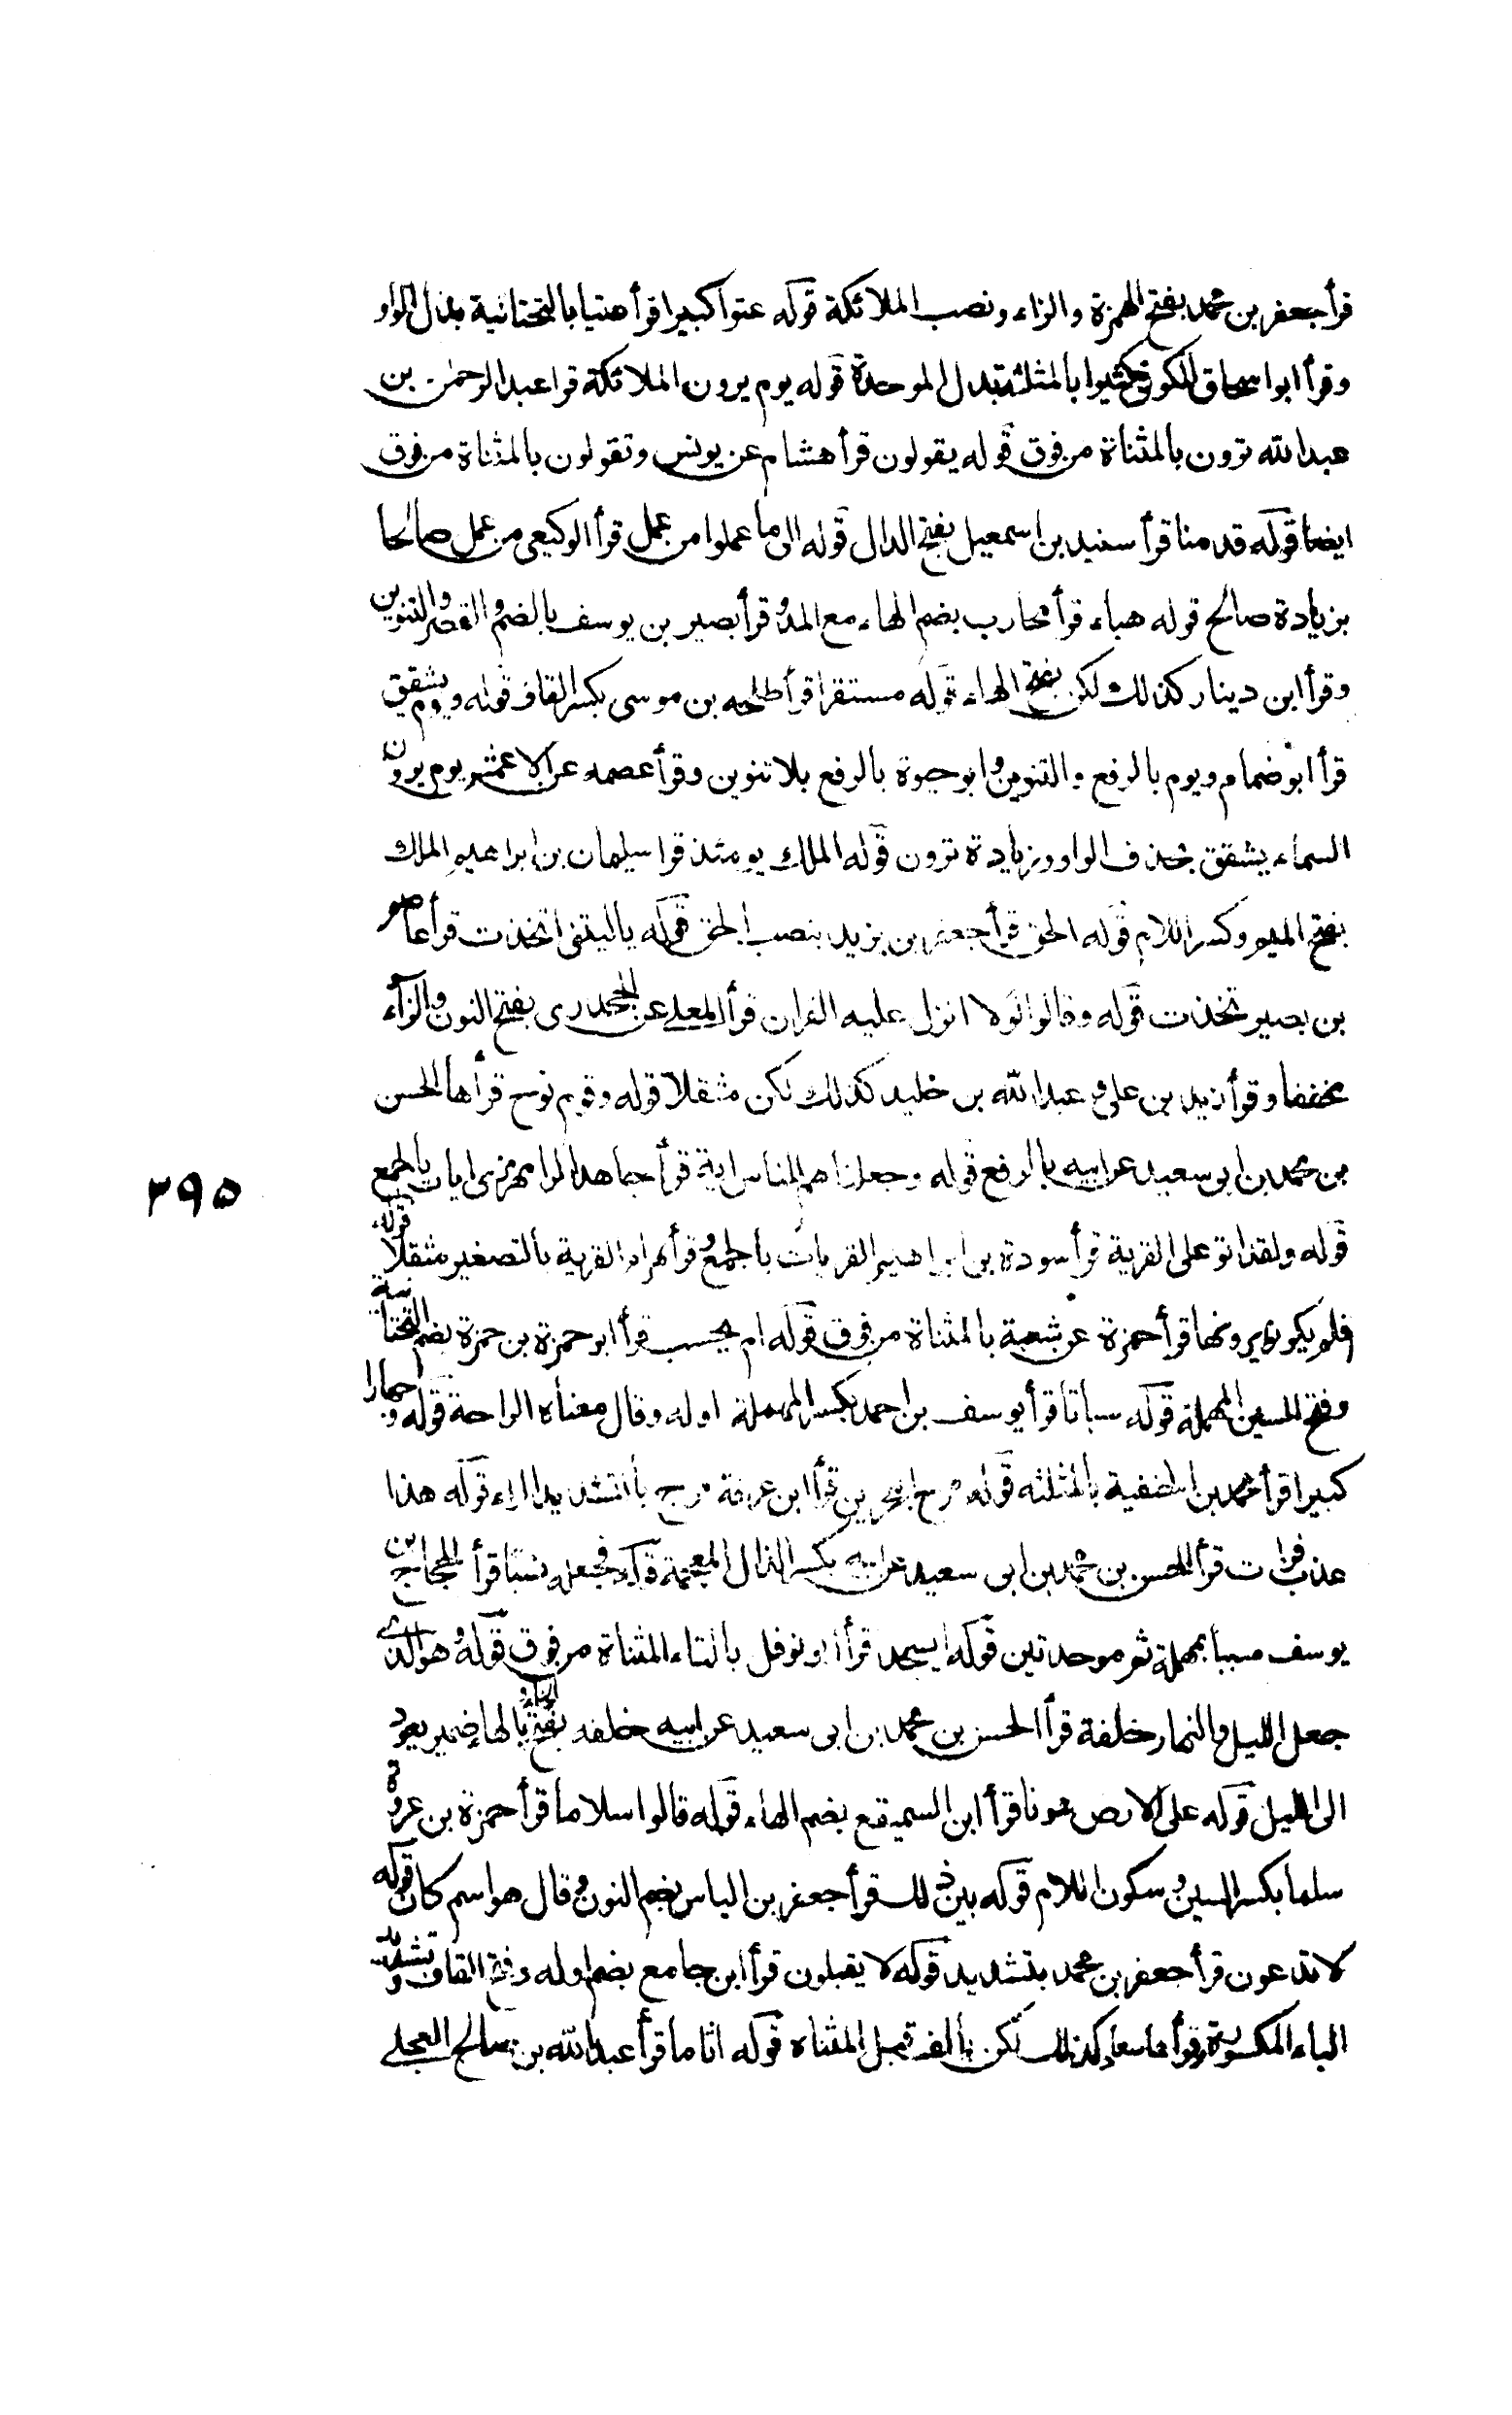 قرأ جعفر بن محمد بفتح الهمزة والزاء ونصب الملائكة قوله عتوا كبيرا قرأ عتيا بالتحتانية بدل الواو
وقرأ ابواسحاق الكوفى كثيرا بالمثلثة بدل الموحدة قوله يوم يرون الملائكة قرا عبدالرحمن بن
عبدالله ترون بالمثناة من فوق قوله يقولون قرأ هشام عن يونس وتقولون بالمثناة من فوق
ايضا قوله قدمنا قرأ سنيد بن اسمعيل بفتح الدال قوله الى ما عملوا من عمل قرأ الوكيعى من عمل صالحا
بزيادة صالح قوله هباء قرأ محارب بضم الهاء مع المد وقرأ بصير بن يوسف بالضم والقصر والتنوين
وقرأ ابن دينار كذلك لكن بفتح الهاء قوله مستقرا قرأ طلحه بن موسى بكسر القاف قوله ويوم يشقق
قرأ ابوضمام ويوم بالرفع والتنوين وابوحيوة بالرفع بلا تنوين وقرأ عصمه عن الاعمش يوم يرون
السماء يشقق بحذف الواو وزيادة ترون قوله الملك يومئذ قرا سليمان بن ابراهيم الملك
بفتح الميم وكسر اللام قوله الحق قرأ جعفر بن يزيد بنصب الحق قوله ياليتنى اتخذت قرأ عاصم
بن بصير تخذت قوله وقالوا لولا انزل عليه القران قرأ المعلى عن الجحدرى بفتح النون والزاء
مخففا وقرأ زيد بن على وعبدالله بن خليد كذلك لكن مثقلا قوله وقوم نوح قرأها الحسن
بن محمد بن ابى سعيد عن ابيه بالرفع قوله وجعلناهم للناس اية قرأ حامد الرامهرمزى ايات بالجمع
قوله ولقد اتو على القرية قرأ سودة بن ابراهيم القريات بالجمع وقرأ بهرام القرية بالتصغير مثقلا قوله
فلم يكونوا يرونها قرأ حمزة عن شعبة بالمثناة من فوق قوله ام يحسب قرأ ابو حمزة بن حمزة بضم التحتانية
وفتح السين المهملة قوله سباتا قرأ يوسف بن احمد بكسر المهملة اوله وقال معناه الراحة قوله وجهارا
كبيرا قرأ محمد بن الحنفية بالمثلثه قوله مرج البحرين قرأ ابن عرفة مرج بالتشديد الراء قوله هذا
عذب فرات قرأ الحسن بن محمد بن ابى سعيد عن ابيه بكسر الذال المعجمة قوله فجعله نسبا قرأ الحجاج بن
يوسف سببا بمهملة ثم موحدتين قوله ايسجد قرأ ابو نوفل بالتاء المثناة من فوق قوله وهو الذى
جعل الليل والنهار خلفة قرأ الحسن بن محمد بن ابى سعيد عن ابيه خلفه بفتح الخاء وبالهاء ضمير يعود
الى الليل قوله على الارض هونا قرأ ابن السميقع بضم الهاء قوله قالوا سلاما قرأ حمزة بن عروة
سلما بكسر السين وسكون اللام قوله بين ذلك قرأ جعفر بن الياس بضم النون وقال هو اسم كان قوله
لا يدعون قرأ جعفر بن محمد بتشديد قوله لا يقبلون قرأ ابن جامع بضم اوله وفتح القاف وتشديد
الياء المكسورة وقرأها معاذ كذلك لكن بالف قبل المثناه قوله اثاما قرأ عبدالله بن صالح العجلى
٢٩٥